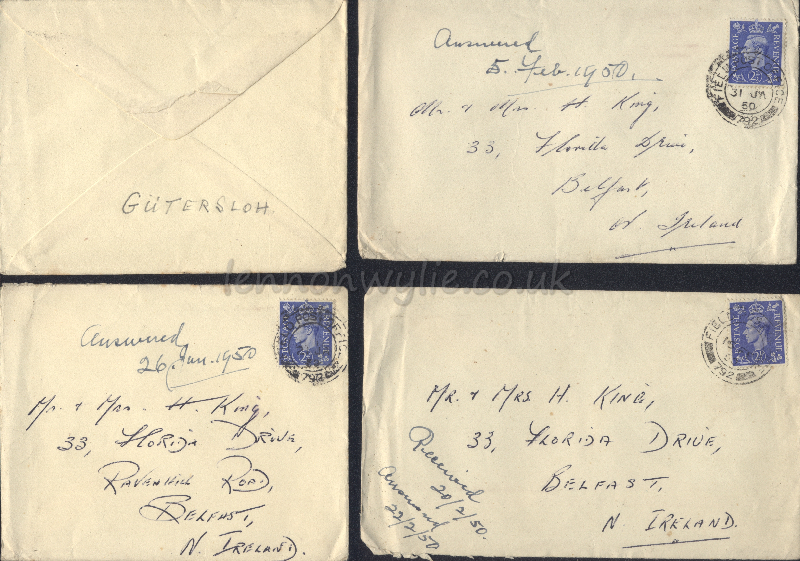 GÜTERSLOH
Answered
5. Feb. 1950.
POSTAGE REVENUE
2½D
FIELD POST OFFICE
31 JA
50
792
Mr. & Mrs. H. King,
33, Florida Drive,
Belfast,
N. Ireland
lennonwylie.co.uk
Answered
26, Jan. 1950
POSTAGE REVENUE
2½D
792
Mr. & Mrs. H. King,
33, Florida Drive,
Ravenhill Road,
Belfast,
N. Ireland.
POSTAGE REVENUE
2½D
FIELD
792
Mr. & Mrs H. King,
33, Florida Drive,
Belfast,
N. Ireland.
Received
20/2/50.
Answered
22/2/50